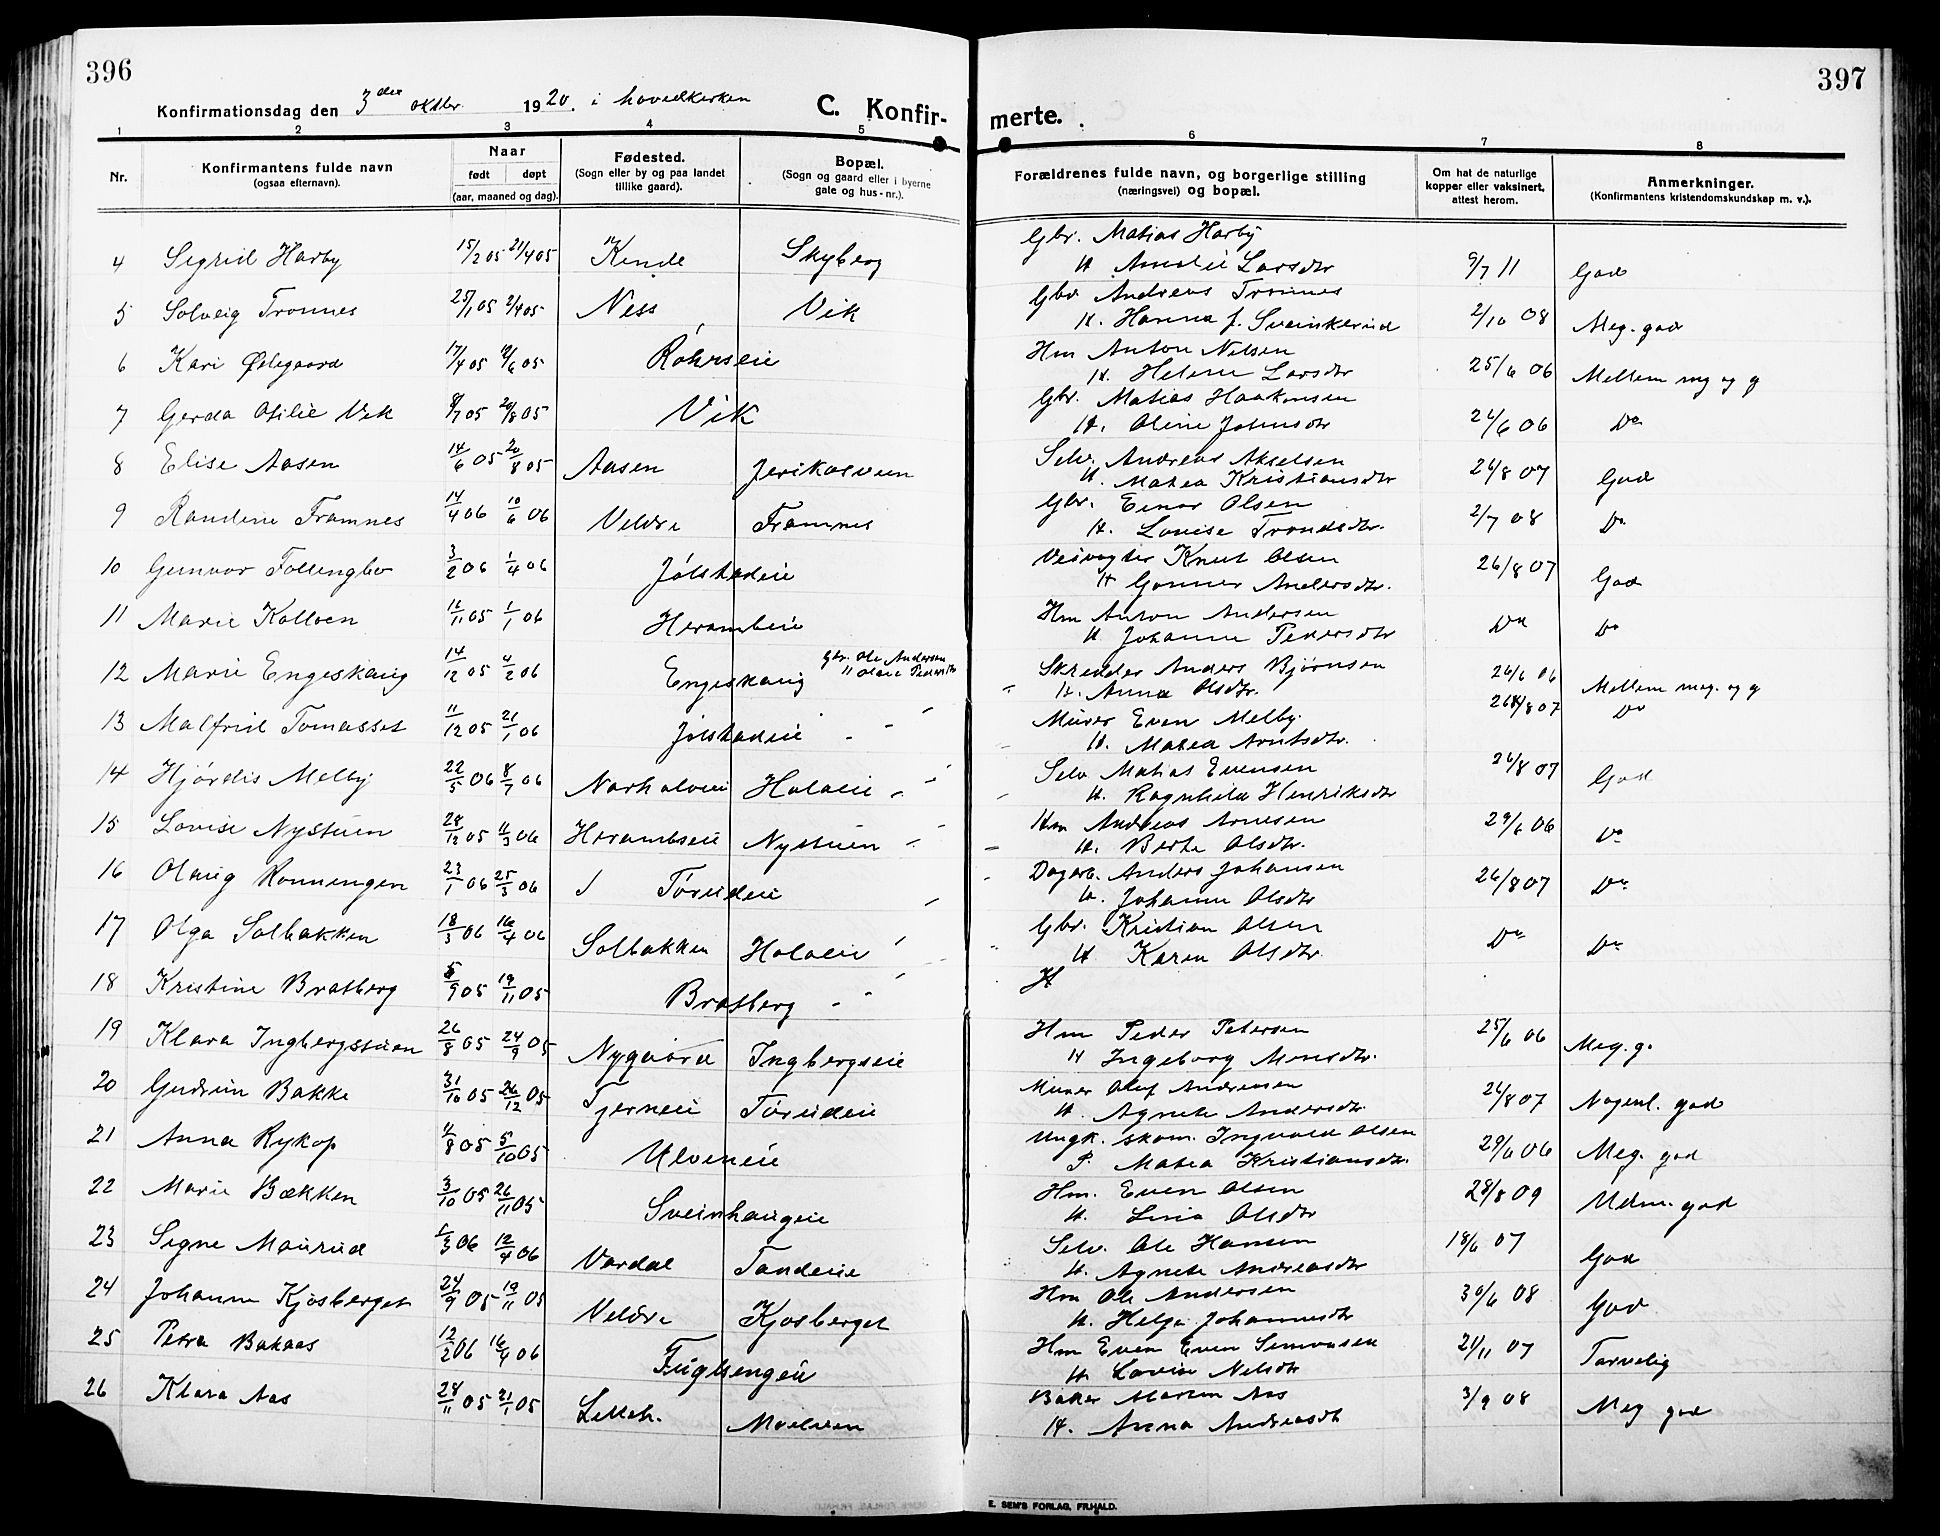 396
397
Konfirmationsdag den 3die oktbr. 1920. i hovedkirken
C. Konfir-
merte.
1 2 3 4 5 6 7 8
Nr. Konfirmantens fulde navn (ogsaa efternavn). Naar født døpt (aar, maaned og dag). Fødested. (Sogn eller by og paa landet tillike gaard). Bopæl. (Sogn og gaard eller i byerne gate og hus-nr.). Forældrenes fulde navn, og borgerlige stilling (næringsvei) og bopæl. Om hat de naturlige kopper eller vaksinert, attest herom. Anmerkninger. (Konfirmantens kristendomskundskap m. v.).
4 Sigrid Harby 15/2 05 21/4 05 Kinde Skyberg Gbr. Matias Harby 9/7 11 God
H Amalie Larsdtr
5 Solveig Tronnes 25/1 05 2/4 05 Ness Vik Gbr Andreas Tronnes 2/10 08 Meg. god
H. Hanna f. Sveinkerud
6 Kari Ødegaard 17/4 05 12/6 05 Rohrseie Hm Anton Nilsen 25/6 06 Mellem mg og g
H. Helene Larsdtr
7 Gerda Otilie Vik 8/7 05 20/8 05 Vik Gbr. Matias Haakonsen 26/6 06 Do
H. Oline Johnsdtr
8 Elise Aasen 14/6 05 20/8 05 Aasen Jerikosveen Selv. Andreas Akselsen 26/8 07 God
H. Matea Kristiansdtr
9 Randine Framnes 14/4 06 10/6 06 Veldre Framnes Gbr. Einar Olsen 2/7 08 Do
H. Lovise Trondsdtr.
10 Gunvor Follingbo 3/2 06 1/4 06 Jølstadeie Veivogter Knut Olsen 26/8 07 God
H Gunner Andersdtr.
11 Marie Kolloen 16/11 05 1/1 06 Herambeie Hm Anton Andersen Do Do
H Johanne Pedersdtr
12 Marie Engeskaug 14/12 05 4/2 06 Engeskaug Gbr. Ole Andersen Skredder Anders Bjørnsen 26/6 06 Mellem meg. og g
" Olave Pedersdtr H. Anna Olsdtr.
13 Malfrid Tomasset 11/12 05 21/1 06 Jølstadeie Murer Even Melby 26/8 07 Do
H. Matea Arntsdtr.
14 Hjørdis Melby 22/5 06 8/7 06 Norholveie Holoeie Selv Matias Evensen 26/8 07 God
H. Ragnhild Henriksdtr
15 Lovise Nystuen 28/12 05 11/3 06 Herambseie Nystuen Hm Andreas Arnesen 29/6 06 Do
H. Berte Olsdtr.
16 Olaug Ronningen 23/1 06 25/3 06 Torudeie Dagarb. Anders Johansen 26/8 07 Do
H. Johanne Olsdtr
17 Olga Solbakken 18/3 06 16/4 06 Solbakken Holoeie Gbr. Kristian Olsen Do Do
H Karen Olsdtr.
18 Kristine Bratberg 5/9 05 19/11 05 Bratberg H
19 Klara Ingbergstuen 26/8 05 24/9 05 Nygaard Ingbergseie Hm Peder Petersen 25/6 06 Meg. g.
H Ingeborg Monsdtr.
20 Gudrun Bakke 31/10 05 26/12 05 Tjerneie Torudeie Murer Olaf Andreasen 26/8 07 Nogenl. god
H. Agnete Andersdtr.
21 Anna Rykop 4/8 05 5/10 05 Ulveneie Ungk. skom. Ingvald Olsen 29/6 06 Meg. god
P. Matea Kristiansdtr.
22 Marie Bækken 3/10 05 26/11 05 Sveinhaugeie Hm. Even Olsen 28/8 09 Udm. god
H. Lina Olsdtr
23 Signe Maurud 5/3 06 12/4 06 Vardal Tandeie Selv. Ole Hansen 18/6 07 God
H. Agnete Andreasdtr
24 Johanne Kjosberget 24/9 05 19/11 05 Veldre Kjosberget Hm Ole Andersen 30/6 08 God
H. Helga Johannesdtr
25 Petra Bakaas 12/2 06 16/4 06 Fuglsengeie Hm Even Even Simensen 21/11 07 Tarvelig
H Lovise Nilsdtr
26 Klara Aas 28/11 05 21/1 05 Lilleh. Moelven Baker Martin Aas 3/9 08 Meg god
H. Anna Andreasdtr
E. SEM'S FORLAG, FR.HALD.